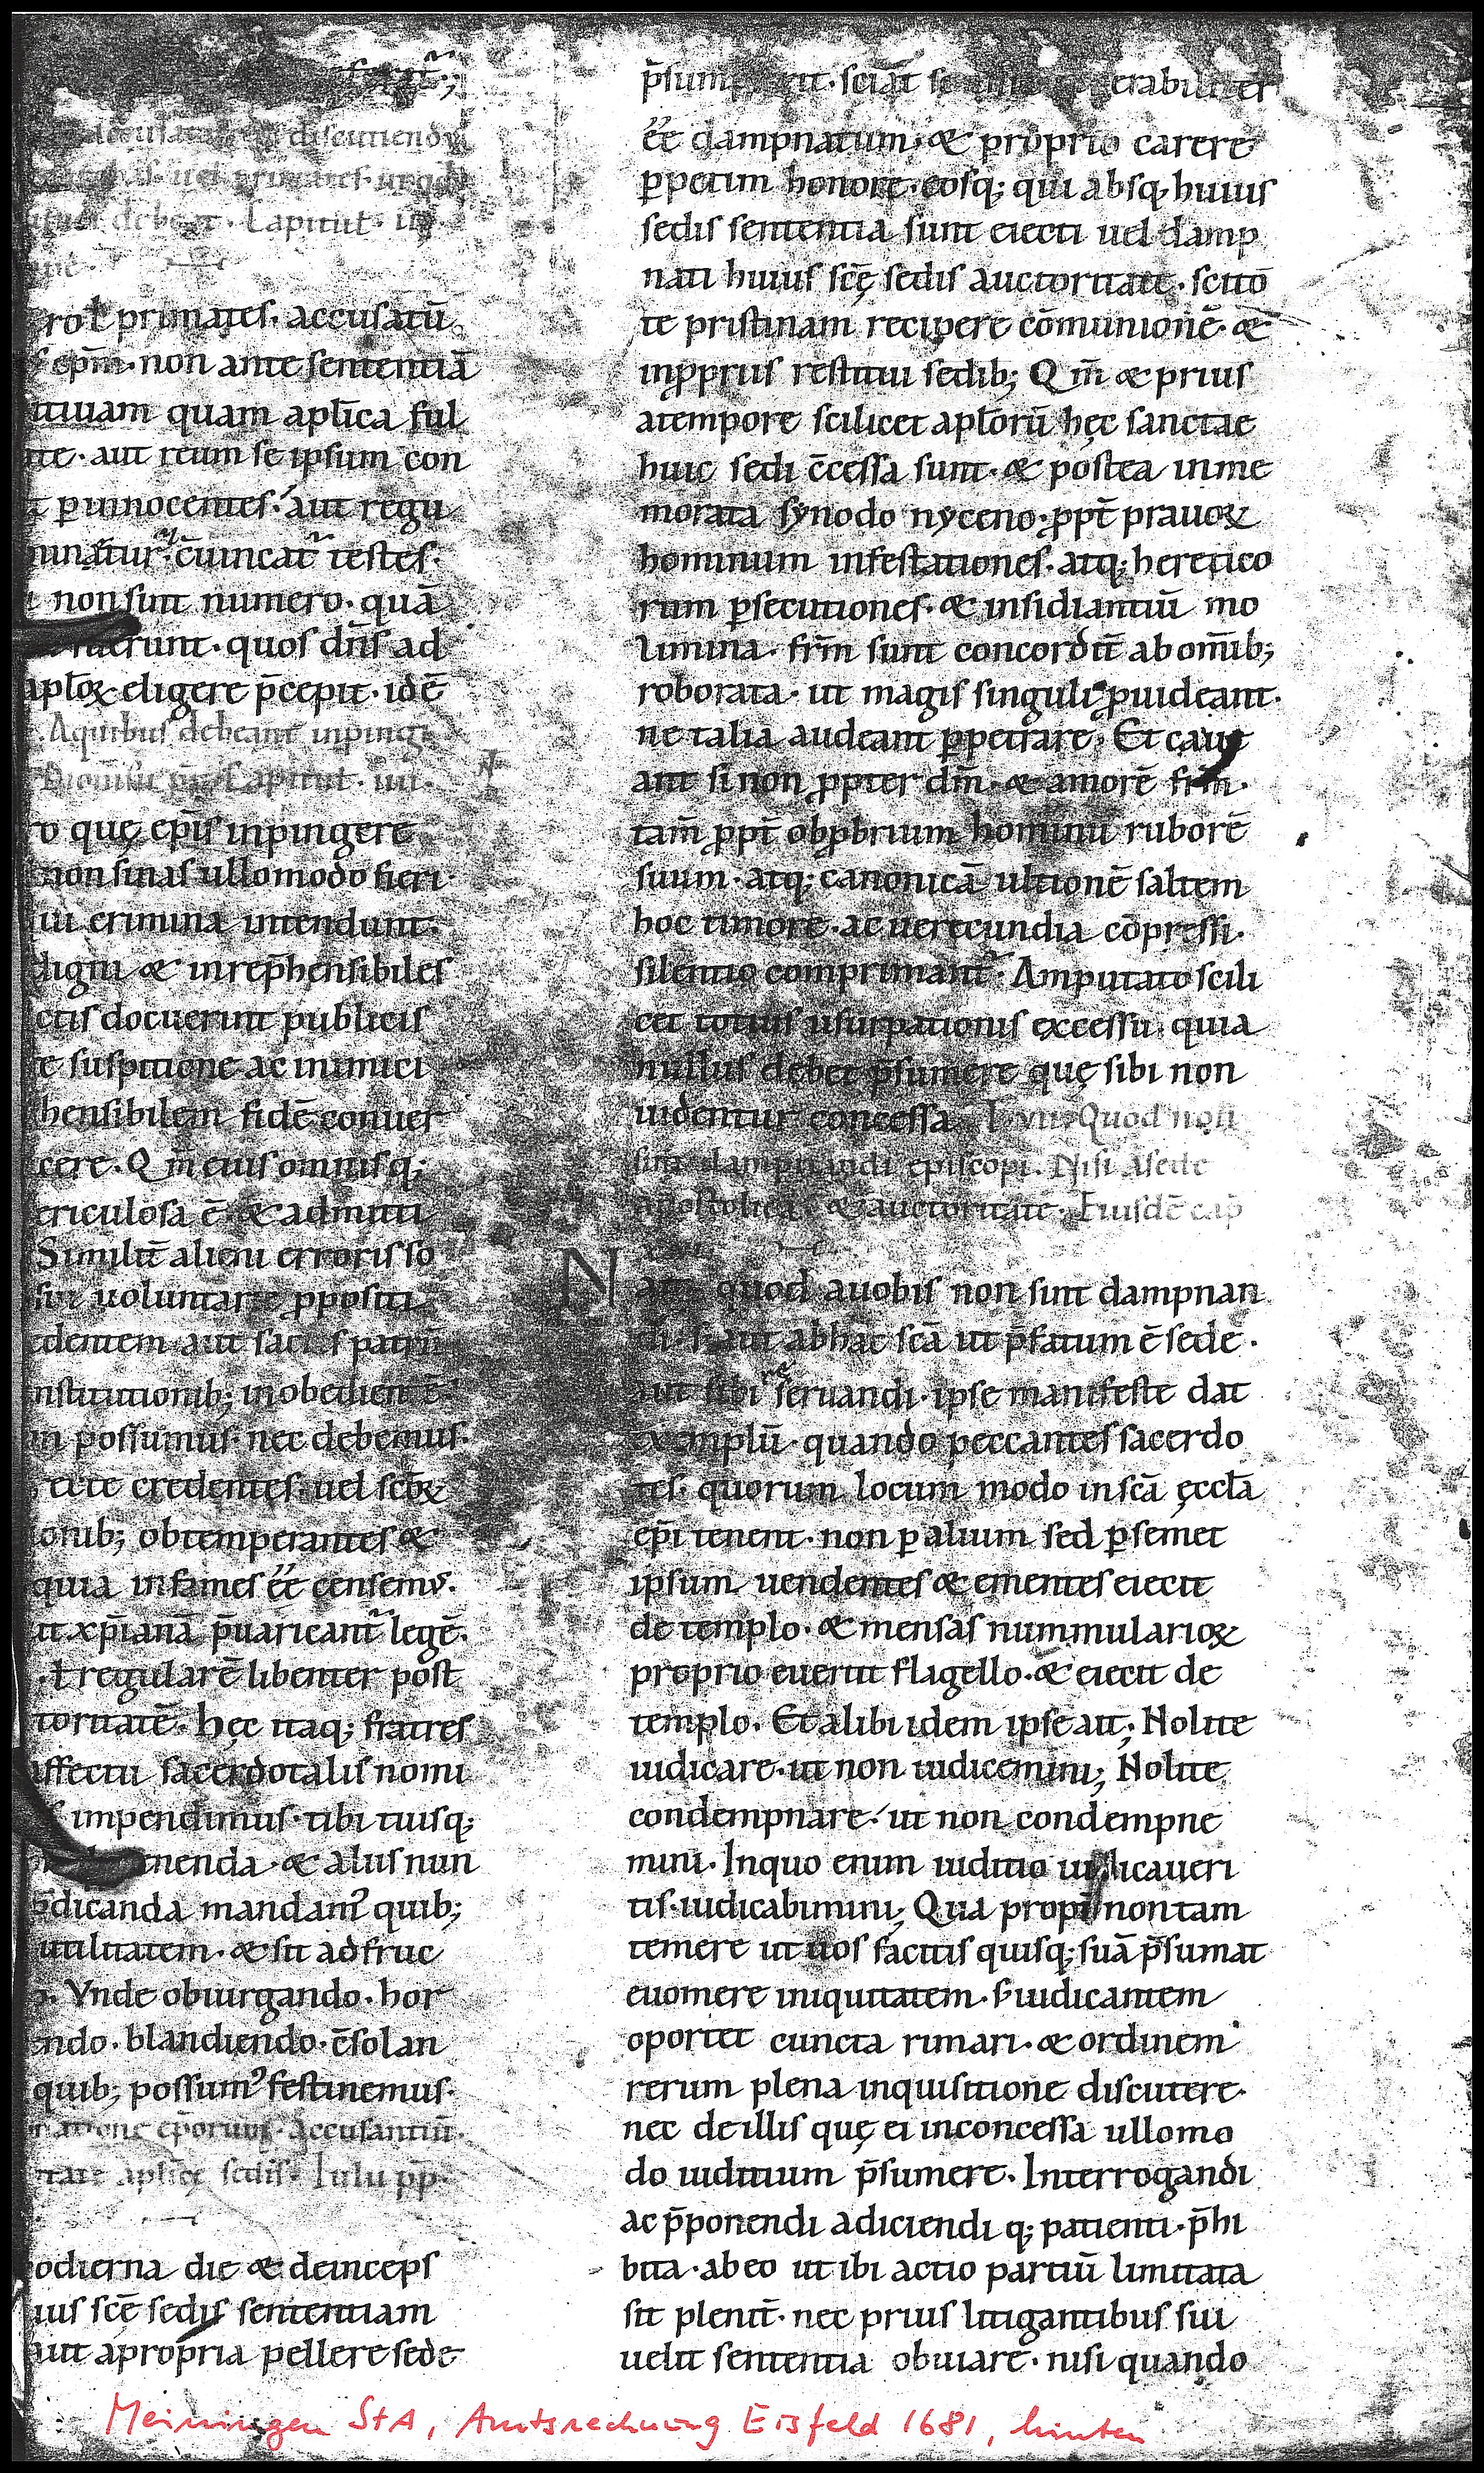 accusatores discutiendi
uel primates
debeat. Capitul. iii.
rol primates. accusatū
epm̄. non ante sententiā
itiuam quam aplīca ful
te. aut reum se ipsum con
t ꝑ innocentes. aut regu
minātur. c̄uincat᷑ testes.
non sint numero. quā
erunt. quos dn̄s ad
aploꝝ eligere p̄cepit. idē
A quibus debeant inpingi
Capitul. iiii.
o quę epīs inpingere
non sinas ullomodo fieri.
ui crimina intendunt.
digni & inrep̄hensibiles
ctis docuerint publicis
e suspitione ac inimici
hensibilem fidē conuer
cere. Qm̄ eius omnisq;
ericulosa ē. & admitti
Similit̄ alieni erroris so
sui uoluntarie ꝓpositi
dentem aut sacris patrū
nstitutionib; inobedientē
possumus. nec debemus.
ecte credentes. uel scōꝝ
onib; obtemperantes &
quia infames ēē censemꝰ.
it xp̄ianā p̄uaricant᷑ legē.
ł regularē libenter post
toritatē. hęc itaq; fratres
ffectu sacerdotalis nomi
impendimus. tibi tuisq;
nenda. & aliis nun
dicanda mandamꝰ quib;
utilitatem. & sit ad fruc
Vnde obiurgando. hor
ando. blandiendo. c̄solan
quib; possumꝰ festinemus.
natione ep̄orum. Accusantiū.
aplīcę sedis. Iulii pp̄.
odierna die & deinceps
ius scē sedis sententiam
aut a propria pellere sede
p̄sum sciāt se
ēē dampnatum. & proprio carere
ꝑpetim honore. eosq; qui absq; huius
sedis sententia sunt eiecti uel damp
nati huius scę̄ sedis auctoritate. scitō
te pristinam recipere cōmunionē. &
in ꝓpriis restitui sedib; Qm̄ & prius
a tempore scilicet aploꝝrū hęc sanctae
huic sedi c̄cessa sunt. & postea in me
morata synodo nyceno. ꝓpt̄ prauoꝝ
hominum infestationes. atq; heretico
rum ꝑsecutiones. & insidiantiū mo
limina. frm̄ sunt concordit̄ ab om̄ib;
roborata. ut magis singuli ꝓuideant.
ne talia audeant ꝑpetrare. Et caue
ant si non ꝓpter dm̄. & amorē frm̄.
tam̄ ꝓpt̄ obꝓbrium hominū ruborē
suum. atq; canonicā ultionē saltem
hoc timore. ac uerecundia cōpressi.
silentio comprimant᷑. Amputato scili
cet totius usurpationis excessu. quia
nullus debet p̄sumere quę sibi non
uidentur concessa. Quod non
sint dampnandi episcopi. Nisi a sede
apostolica. & auctoritate. Eiusdē cap̄
N am quod a uobis non sint dampnan
di. s; aut ab hac scā ut p̄fatum ē sede.
aut sibi reseruandi. ipse manifeste dat
exemplū. quando peccantes sacerdo
tes. quorum locum modo in scā ęcclā
epī tenent. non ꝑ alium sed ꝑ semet
ipsum uendentes & ementes eiecit
de templo. & mensas nummularioꝝ
proprio euertit flagello. & eiecit de
templo. Et alibi idem ipse ait; Nolite
iudicare. ut non iudicemini; Nolite
condempnare. ut non condempne
mini. In quo enim iuditio iudicaueri
tis. iudicabimini; Qua propt̄ non tam
temere ut uos facitis quisq; suā p̄sumat
euomere iniquitatem. s; iudicantem
oportet cuncta rimari. & ordinem
rerum plena inquisitione discutere.
nec de illis quę ei inconcessa ullomo
do iuditium p̄sumere. Interrogandi
ac p̄ponendi adiciendi q; patienti. p̄hi
bita. ab eo ut ibi actio partiū limitata
sit plenit̄. nec prius litigantibus sui
uelit sententia obuiare. nisi quando
Meiningen StA, Amtsrechnung Eisfeld 1681, hinten